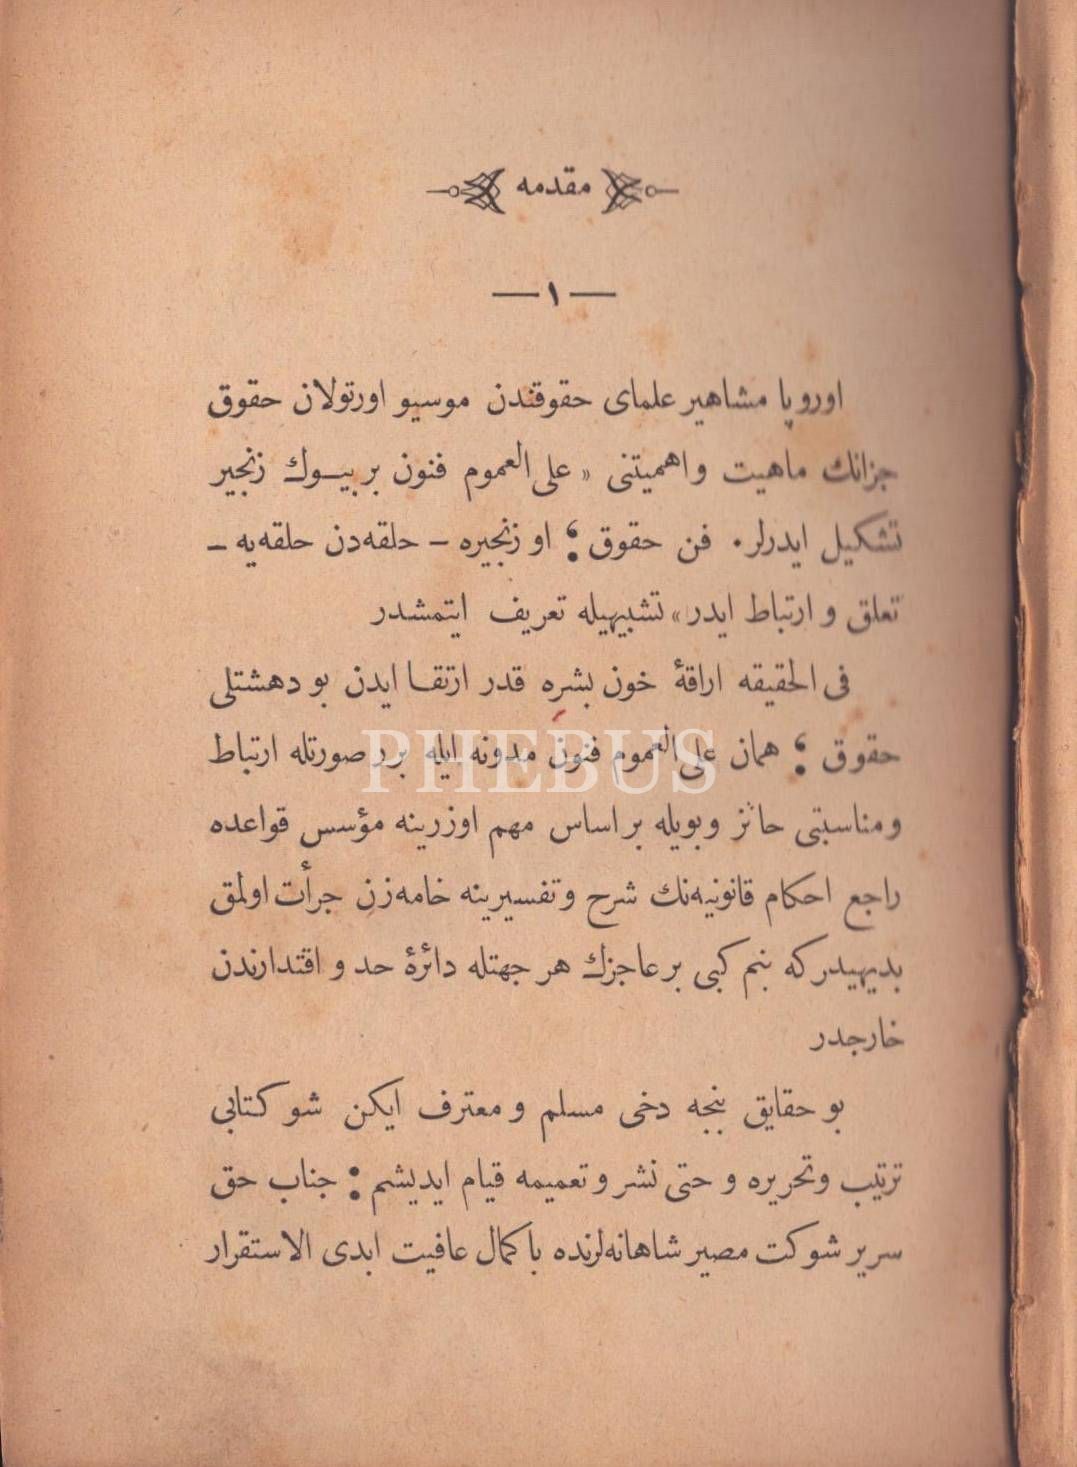 مقدمه
— ١ —
اوروپا مشاهیر علمای حقوقندن موسیو اورتولان حقوق
جزانك ماهیت و اهمیتنی « علی العموم فنون بر بیــوك زنجیر
تشكیل ایدرلر . فن حقوق ؛ او زنجیره – حلقه‌دن حلقه‌یه –
تعلق و ارتباط ایدر » تشبیهیله تعریف ایتمشدر
فی الحقیقه اراقۀ خون بشره قدر ارتقــا ایدن بو دهشتلی
حقوق ؛ همان علی العموم فنون مدونه ایله برر صورتله ارتباط
و مناسبتی حائز و بویله بر اساس مهم اوزرینه مؤسس قواعده
راجع احكام قانونیه‌نك شرح و تفسیرینه خامه‌زن جرأت اولمق
بدیهیدركه بنم كبی بر عاجزك هر جهتله دائرۀ حد و اقتدارندن
خارجدر
بو حقایق بنجه دخی مسلم و معترف ایكن شو كتابی
ترتیب و تحریره و حتی نشر و تعمیمه قیام ایدیشم : جناب حق
سریر شوكت مصیر شاهانه‌لرنده با كمال عافیت ابدی الاستقرار
PHEBUS